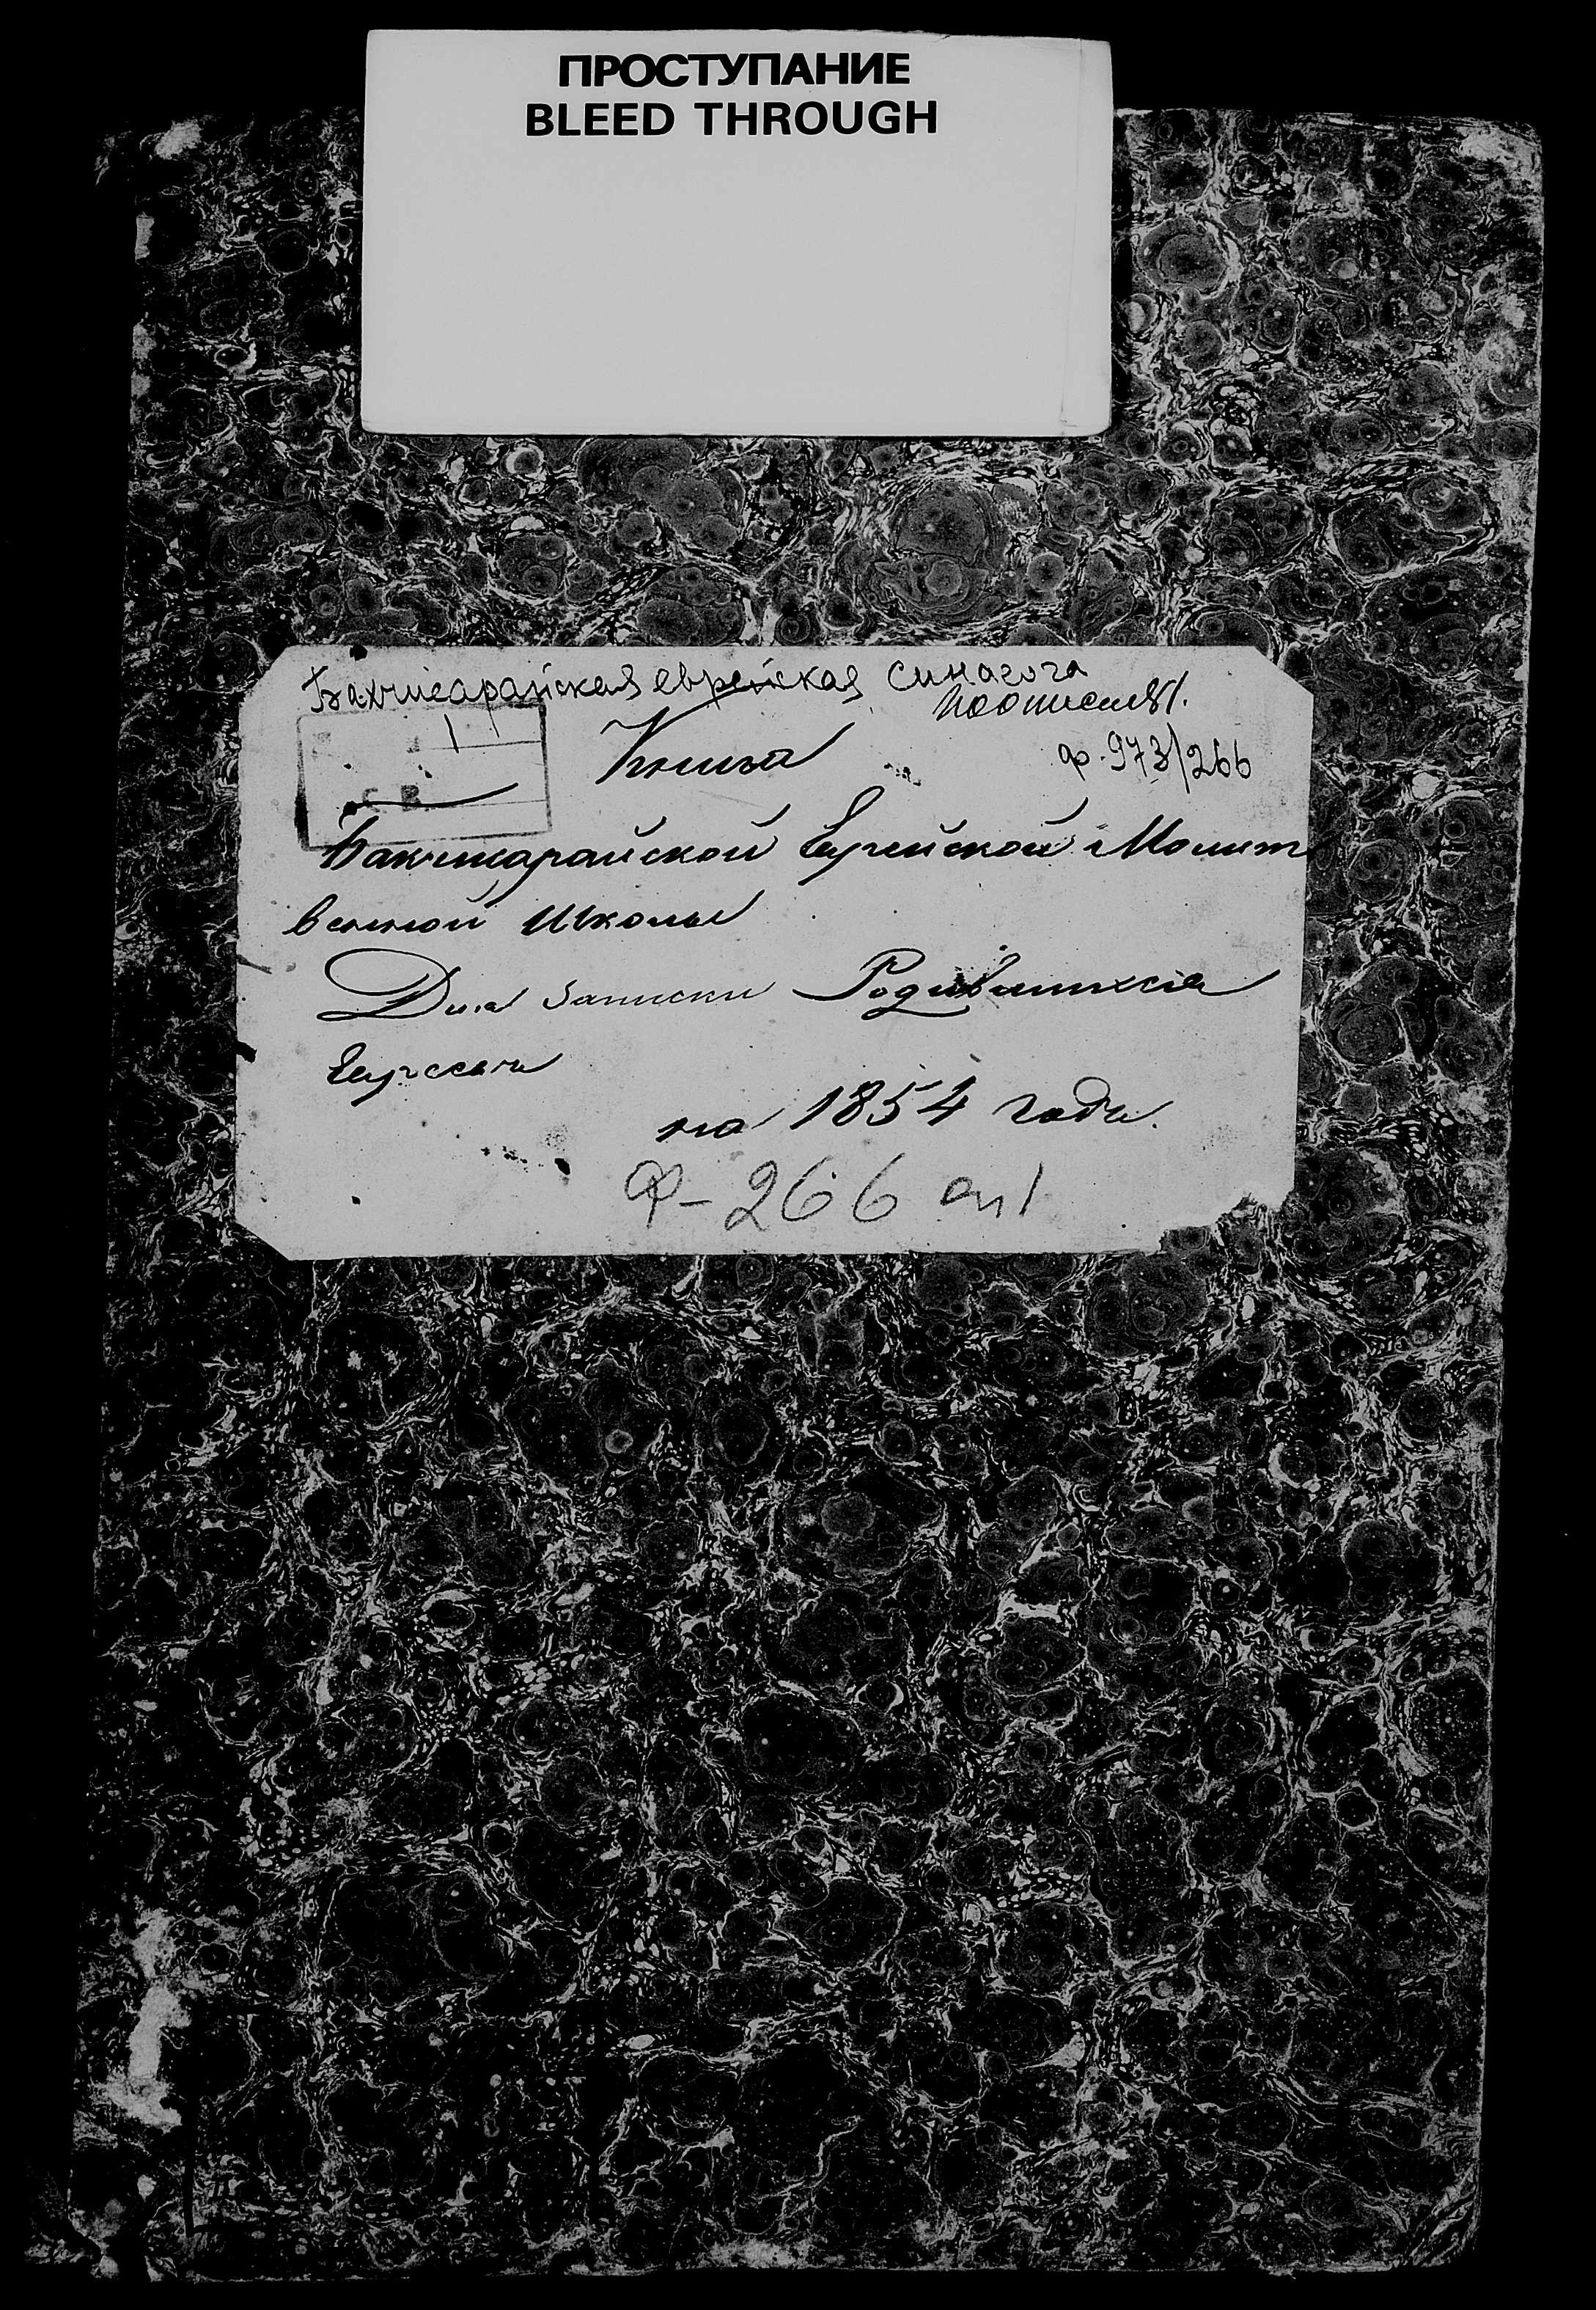 ПРОСТУПАНИЕ
BLEED THROUGH
Бахчисарайская еврейская синагога
по описи №1.
Книга
ф. 973/266
Бакчисарайской Еврейской Молит
венной Школы
Для записки Родившихся
Евреевъ
на 1854 годъ.
Ф-266 оп 1